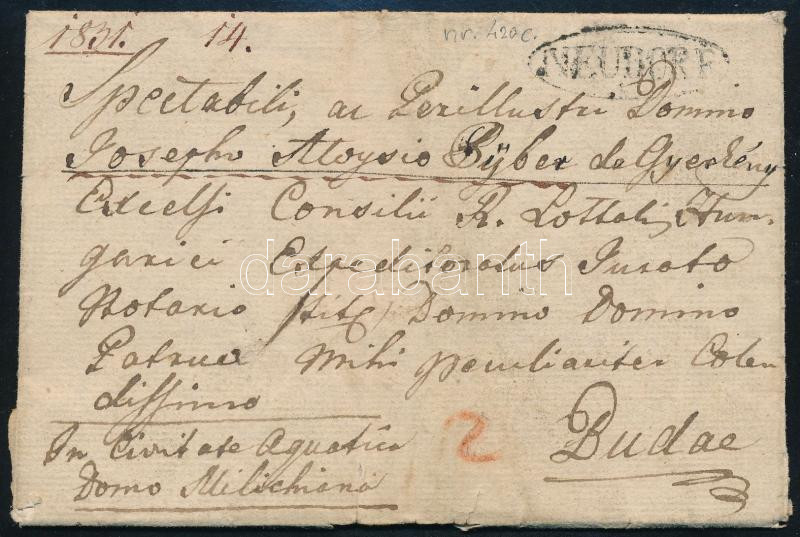 1831. 14. nr. 420c.
NEUDORF
Spectabili, ac Perillustri Domino
Josepho Aloysio Sÿber de Gyerkény
Excelsi Consilii R. Lottali Hun-
garici Expeditoratus Jurato
Notario /tit/ Domino Domino
Patruo Mihi peculiariter Colen
dissimo
In Civitate Aquatica
Domo Milischiana
2 Budae
darabanth